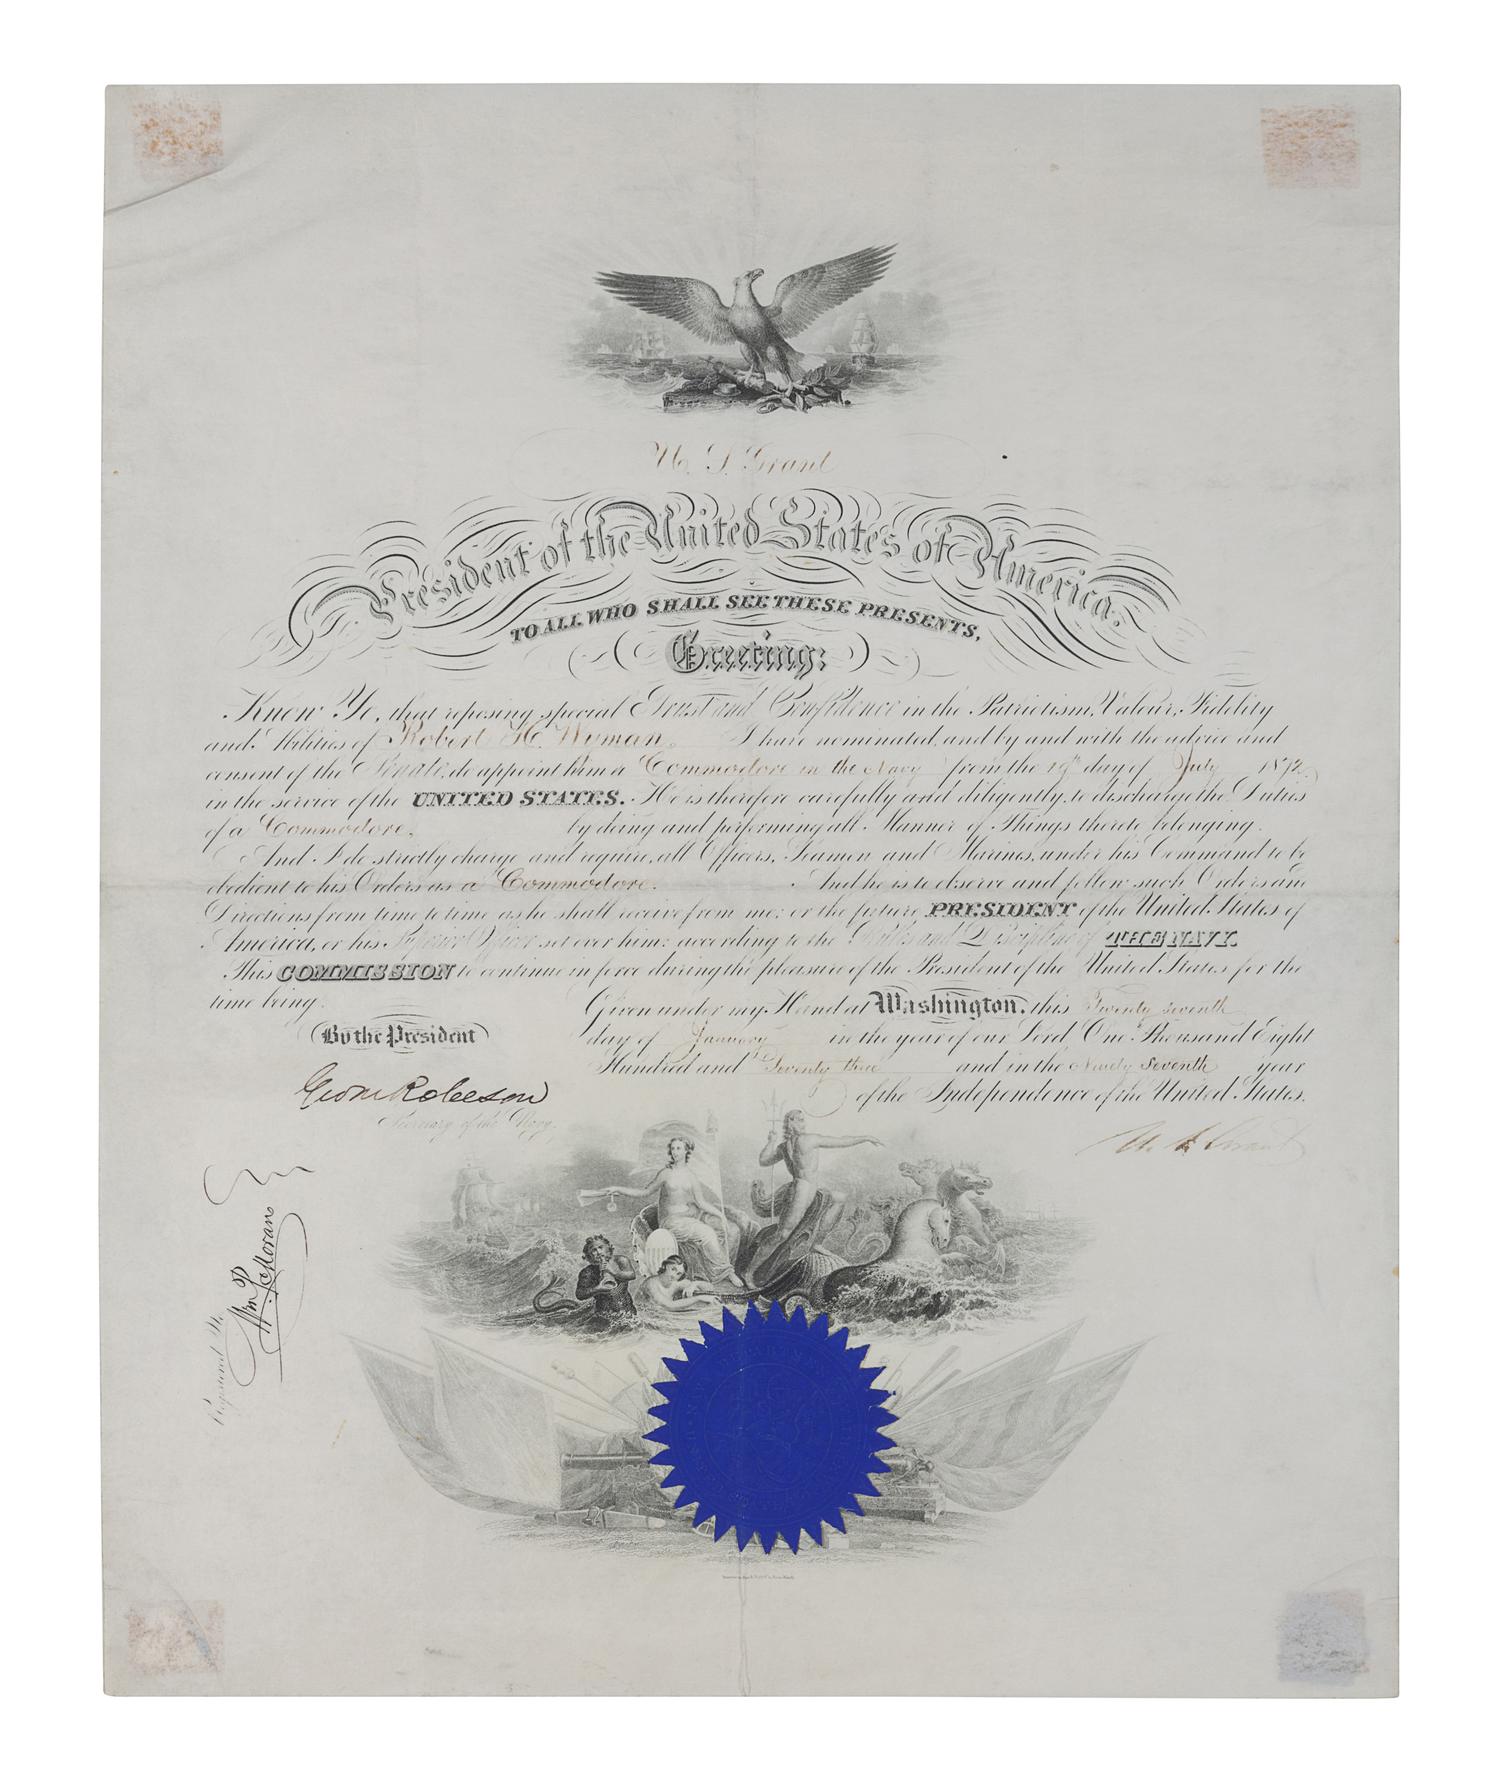 U. S. Grant
President of the United States of America.
TO ALL WHO SHALL SEE THESE PRESENTS,
Greeting:
Know Ye, that reposing special Trust and Confidence in the Patriotism, Valour, Fidelity
and Abilities of Robert H. Wyman, I have nominated, and by and with the advice and
consent of the Senate, do appoint him a Commodore in the Navy from the 19th day of July 1872
in the service of the UNITED STATES. He is therefore carefully and diligently to discharge the Duties
of a Commodore, by doing and performing all Manner of Things thereto belonging.
And I do strictly charge and require, all Officers, Seamen and Marines, under his Command to be
obedient to his Orders as a Commodore. And he is to observe and follow such Orders and
Directions from time to time as he shall receive from me; or the future PRESIDENT of the United States of
America, or his Superior Officer set over him: according to the Rules and Discipline of THE NAVY.
This COMMISSION to continue in force during the pleasure of the President of the United States for the
time being.
Given under my Hand at Washington, this Twenty seventh
By the President
day of January in the year of our Lord One Thousand Eight
Hundred and Seventy three and in the Ninety Seventh year
Geo M Robeson
of the Independence of the United States.
Secretary of the Navy.
U. S. Grant
Registered
Wm P Moran